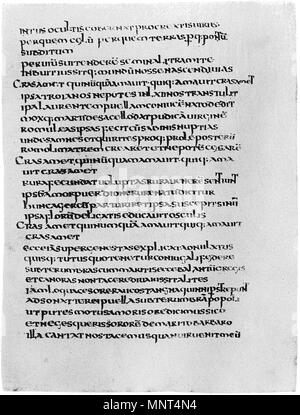 INTUS OCULTIS GUBERNAT PROCREANTIS VIRIBUS
PERQUEM PERQUEM TERRAS PERQ PONTU
SUBDITUM
PERVIUM SUI TENDERE SEMINALI TRAMITE
INBUIT IUSSITQ MUNDU NOSSE NASCENDI VIAS
CRAS AMET QUI NUQUA AMAUIT QUIQ AMAUIT CRAS AMET
IPSA TROIANOS NEPOTES IN LATINOS TRANSTULIT
IPSA LAURENTEM PUELLAM CONIUGE NATO DEDIT
MOXQ MARTI DE SACELLO DAT PUDICA UIRGINE
ROMULEAS IPSA FECIT CU SABINIS NUPTIAS
UNDE RAMNES ET QUIRITES PROQ PROLE POSTERU
ROMULI MATREM CREARET ET NEPOTE CESARE
CRAS AMET QUI NUQUA AMAUIT QUIQ AMA
UIT CRAS AMET
RURA FECUNDAT UOLUPTAS RURA UENERE SENTIUNT
IPSE AMOR PUER DIONE RURE NATUS DICITUR
HUNC AGER CU PARTURIRET IPSA SUSCEPIT SINU
IPSA FLORU DELICATIS EDUCAUIT OSCULIS
CRAS AMET QUI NUNQUA AMAUIT QUIQ AMAUIT
CRAS AMET
ECCE IA SUPER GENESTAS EXPLICAT
QUISQ TUTUS QUO TENETUR CONIUGALI FEDERE
SUBTER UMBRAS CUM MARITIS ECCE BALANTU GREGES
ET CANORAS NON TACERE DIUA IUSSIT ALITES
IAM LOQUACES ORE RAUCO STAGNA PERSTREPUNT
ADSONAT TEREI PUELLA SUBTER UMBRA POPULI
UT PUTES MOTUS AMORIS ORE DICI MUSICO
ET NEGES QUERI SORORE DE MARITO BARBARO
ILLA CANTAT NOS TACEMUS QUANDO UER UENIT MEU